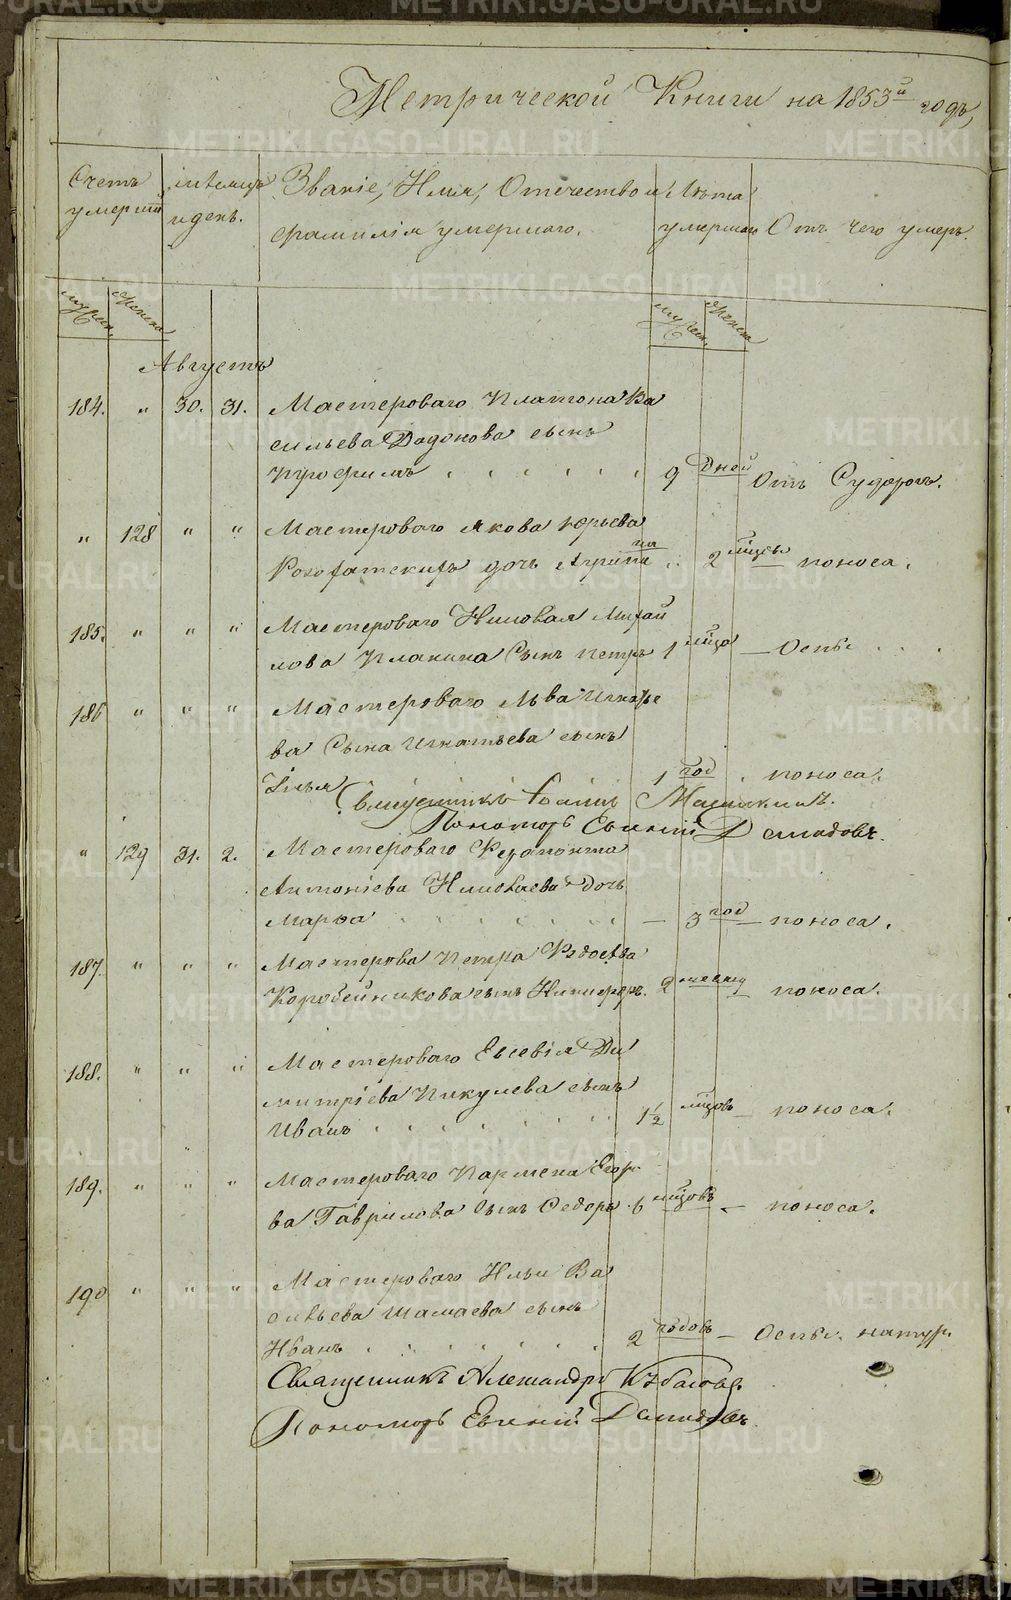 Метрической Книги на 1853й годъ,
Счетъ умершихъ
Мѣсяцъ и день.
Званіе, Имя, Отечество и фамилія умершаго.
Лѣта умершаго
Отъ чего умеръ.
мужеск. женска
мужеск. женска
Августъ
184. " 30. 31. Мастероваго Платона Ва
сильева Дадонова сынъ
Трофимъ 9 дней Отъ Судорочь.
" 128 " " Мастероваго Якова Юрьева
дочь Агрипи
на 2 мѣсяц поноса.
185. " " " Мастероваго Николая Михай
лова Плакина Сынъ Петръ 1 мѣца Оспы
186 " " " Мастероваго Льва Игнатье
ва Сына Игнатьева сынъ
Илья 1 год поноса.
Священникъ Іоаннъ
Пономарь Евгеній Демидовъ.
" 129 31. 2. Мастероваго Ферапонта
Антоніева Николаева дочь
Марѳа 3 год поноса.
187. " " " Мастерова Петра Ѳедосѣева
Коробейникова сынъ Никифоръ. 2 месяц поноса.
188. " " " Мастероваго Евсевія Ди
митріева Пикулева сынъ
Иванъ 1 1/2 мѣцовъ поноса.
189. " " " Мастероваго Пармена Егоро
ва Гаврилова сынъ Ѳедоръ 6 мѣцовъ поноса.
190 " " " Мастероваго Ильи Ва
сильева Шамаева сынъ
Иванъ 2 годовъ Оспы натур.
Священникъ Александръ
Пономарь Евгеній Демидовъ
METRIKI.GASO-URAL.RU